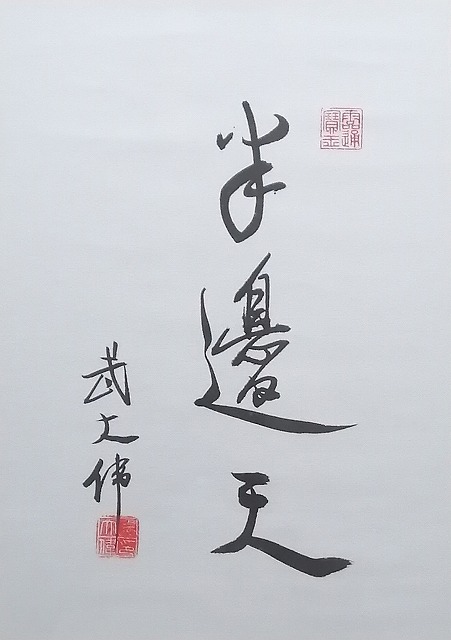 半邊天
武文偉